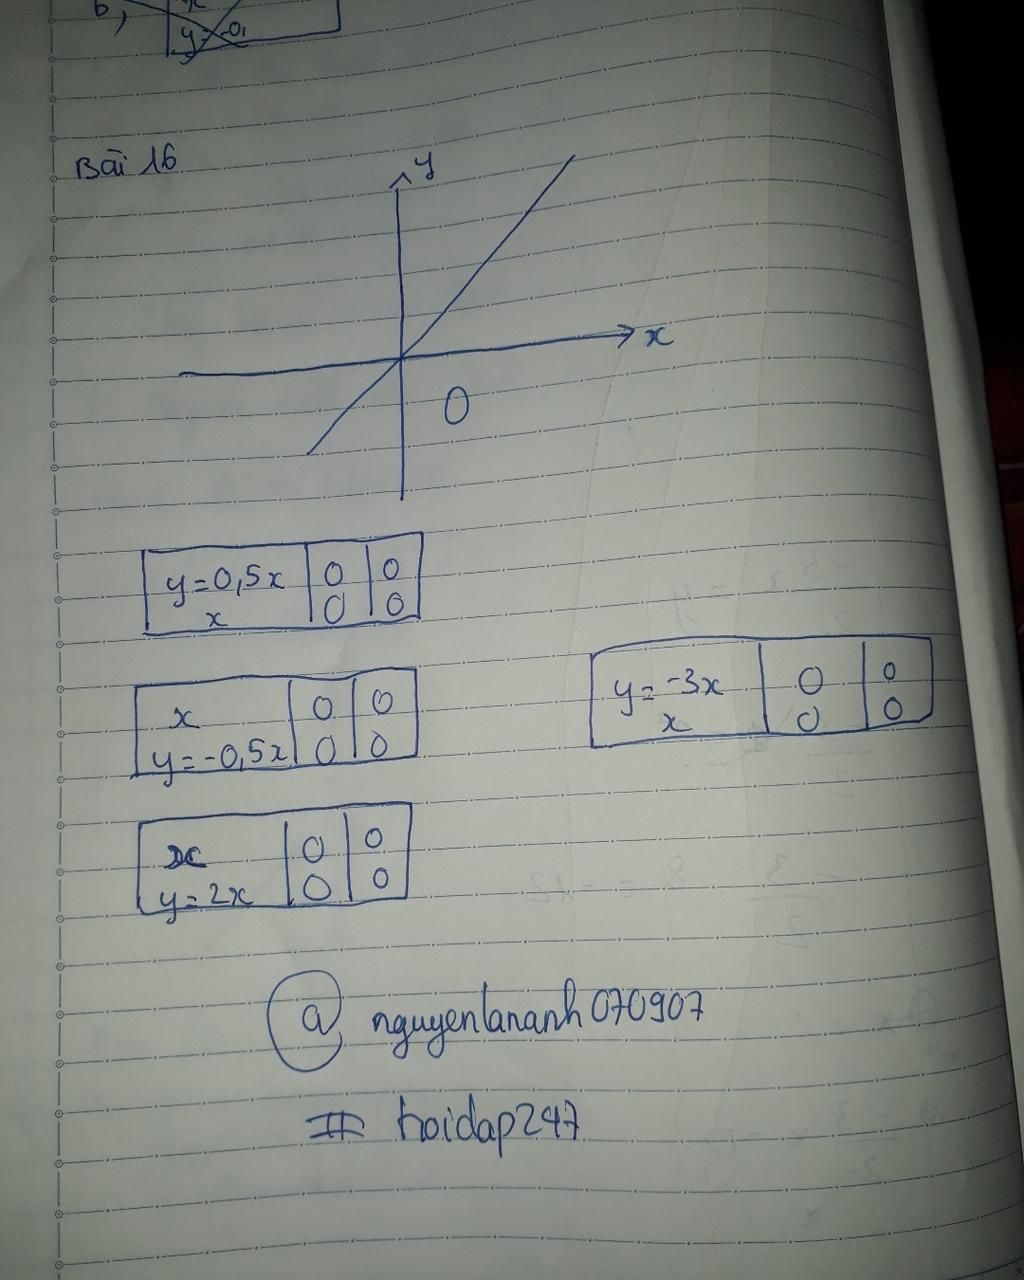 b,
x
y=-0,
Bài 16
y
x
O
y=0,5x 0 0
x 0 0
x 0 0
y=-0,5x 0 0
y=-3x 0 0
x 0 0
x 0 0
y=2x 0 0
@ nguyenlananh070907
# hoidap247